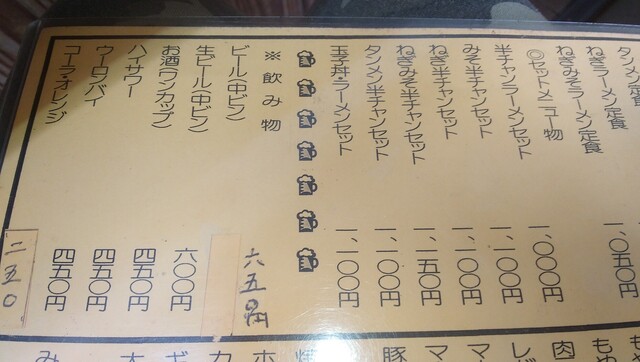 タンメン定食
ねぎラーメン定食
ねぎみそラーメン定食 一、〇五〇円
◎セットメニュー物
半チャンラーメンセット 一、〇〇〇円
みそ半チャンセット 一、一〇〇円
ねぎ半チャンセット 一、一〇〇円
ねぎみそ半チャンセット 一、一五〇円
タンメン半チャンセット 一、一〇〇円
玉子丼・ラーメンセット 一、一〇〇円
※飲み物
ビール(中ビン) 六五〇円
生ビール(中ビン) 六〇〇円
お酒(ワンカップ) 四五〇円
ハイサワー 四五〇円
ウーロンハイ 四五〇円
コーラ・オレンジ 二五〇